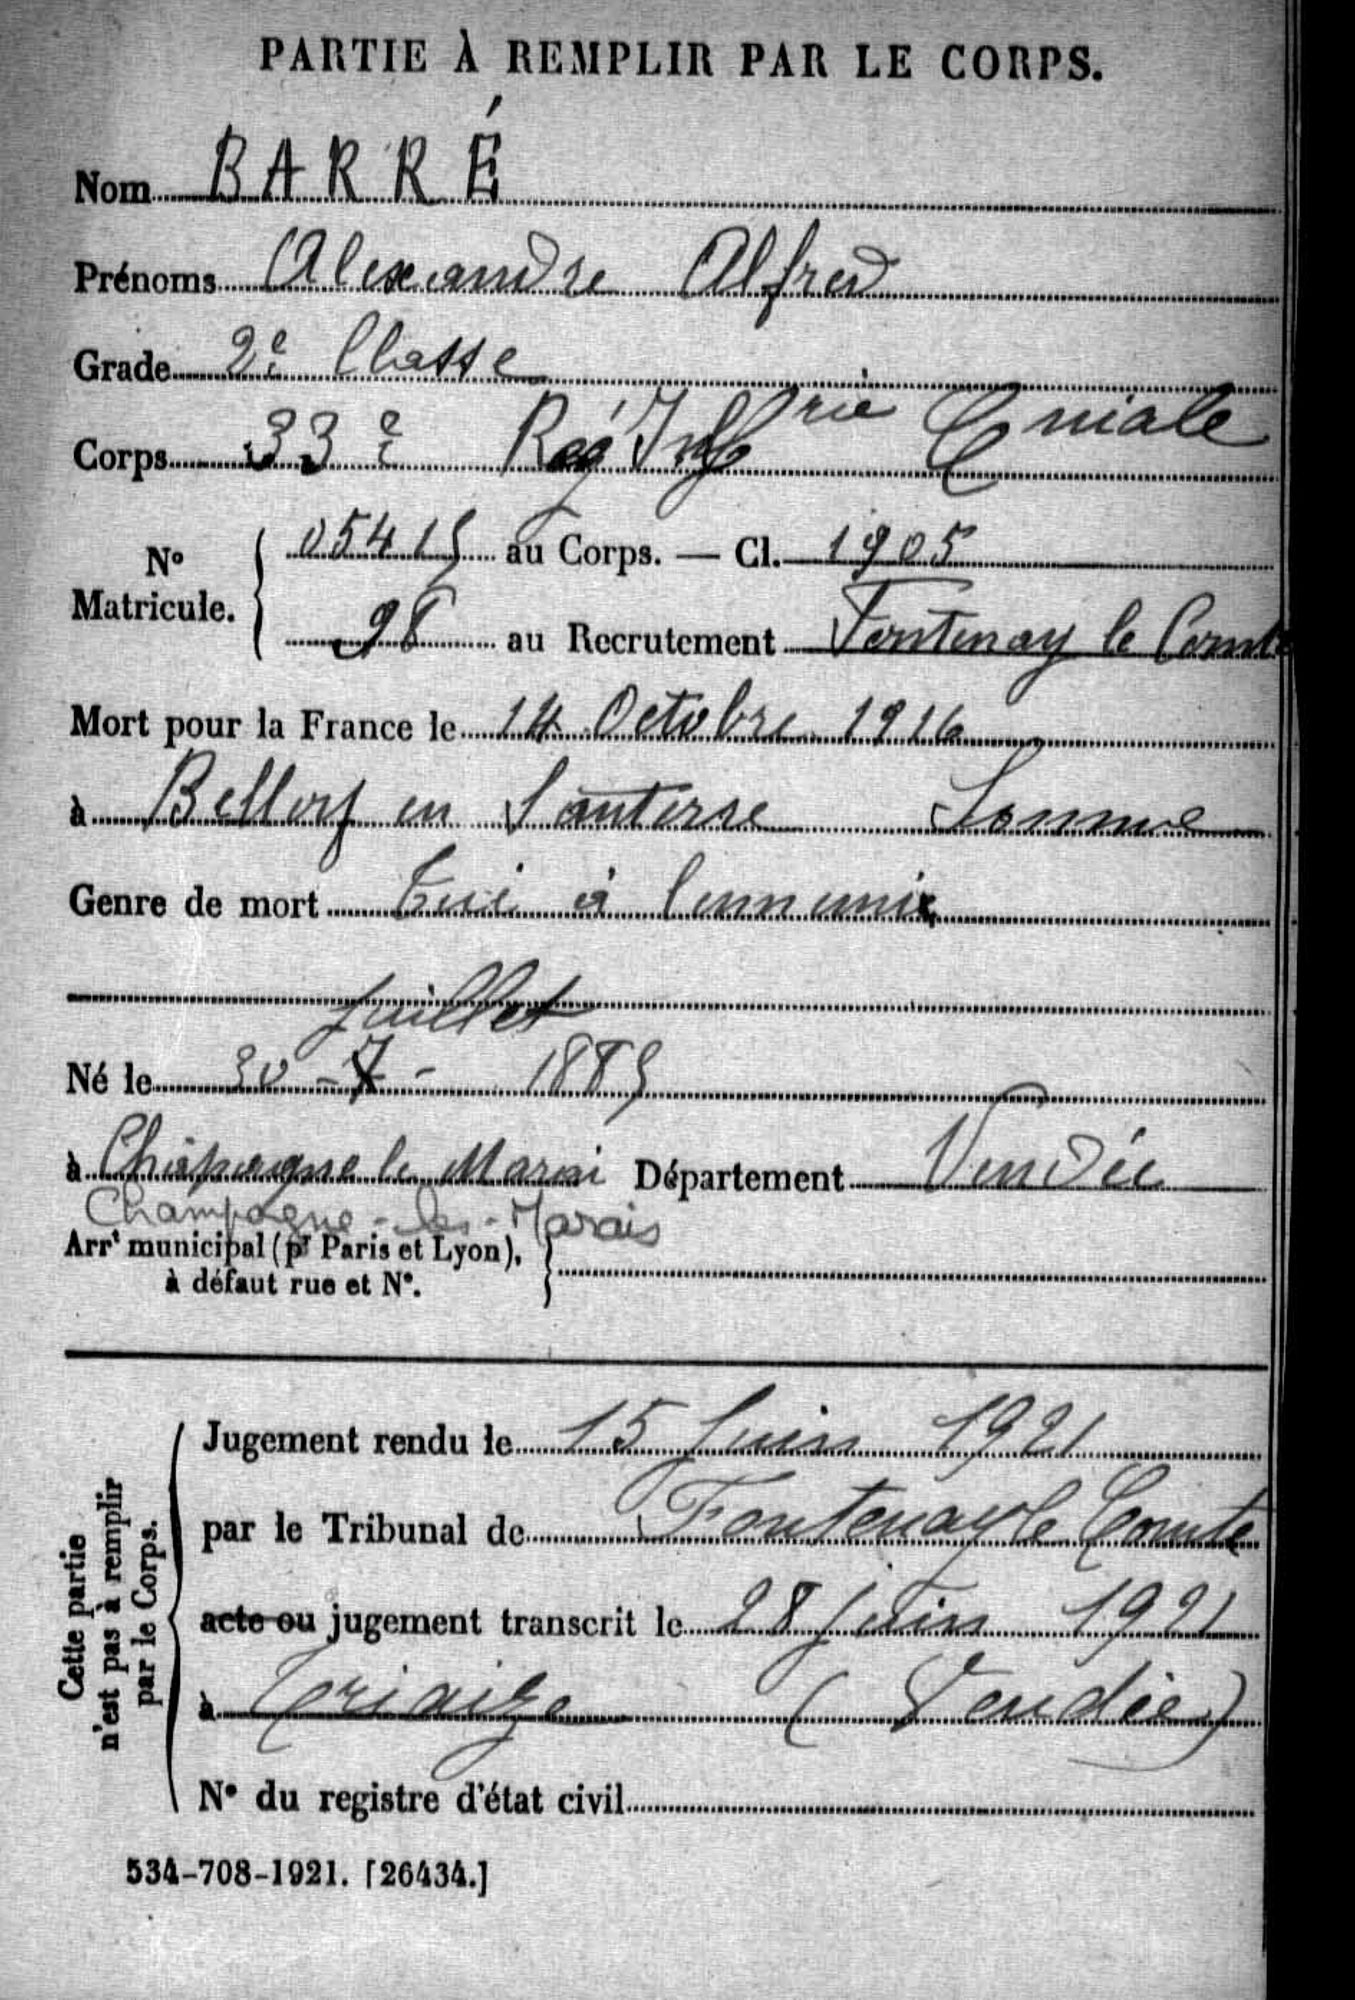 PARTIE À REMPLIR PAR LE CORPS.
Nom BARRÉ
Prénoms Alexandre Alfred
Grade 2e Classe
Corps 33e Rég Inf rie Cniale
No Matricule. { 05415 au Corps. — Cl. 1905
98 au Recrutement Fontenay le Comte
Mort pour la France le 14 Octobre 1916
à Belloy en Santerre Somme
Genre de mort Tué à l'ennemie
juillet
Né le 30 - 7 - 1885
à Châpagne le Marai Département Vendée
Champagne-les-Marais
Arrt municipal (pr Paris et Lyon), }
à défaut rue et No.
Cette partie n'est pas à remplir par le Corps.
Jugement rendu le 15 Juin 1921
par le Tribunal de Fontenay le Comte
acte ou jugement transcrit le 28 juin 1921
à Triaize (Vendée)
No du registre d'état civil
534-708-1921. [26434.]